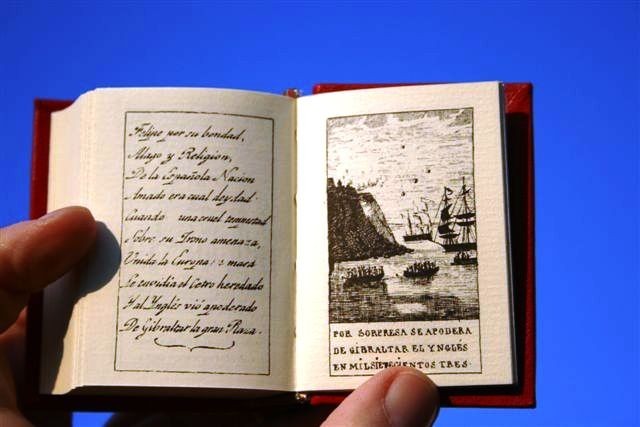 Felipe por su bondad,
Mago y Religion,
De la Española Nacion
Amado era cual deydad.
Cuando una cruel tempestad
Sobre su Trono amenaza,
Unida la Curona
Le envidia el Cetro heredado
Y al Ynglés vió apoderado
De Gibraltar la gran Plaza.
POR SORPRESA SE APODERA
DE GIBRALTAR EL YNGLÉS
EN MIL SIETECIENTOS TRES.